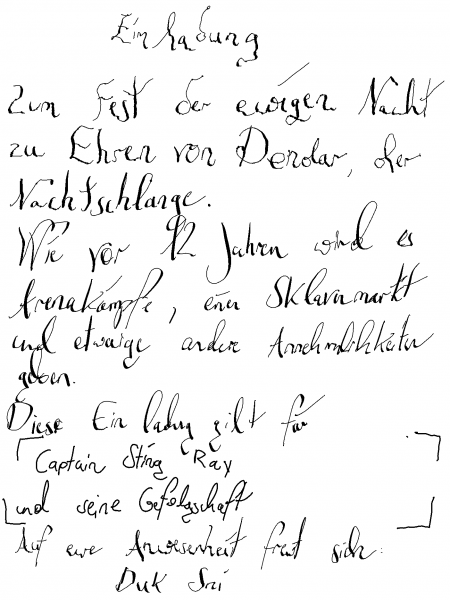 Einladung
Zum Fest der ewigen Nacht
zu Ehren von Dendar, der
Nachtschlange.
Wie vor 12 Jahren wird es
Arenakämpfe, einen Sklavenmarkt
und etwaige andere Annehmlichkeiten
geben.
Diese Einladung gilt für
Captain Sting Ray
und seine Gefolgschaft
Auf eure Anwesenheit freut sich:
Duk Sai